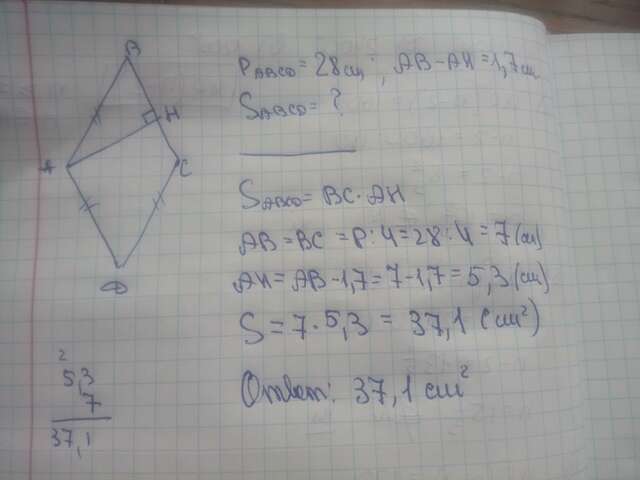 B
H
A
C
D
P ABCD = 28 см; AB - AH = 1,7 см
S ABCD = ?
S ABCD = BC · AH
AB = BC = P : 4 = 28 : 4 = 7 (см)
AH = AB - 1,7 = 7 - 1,7 = 5,3 (см)
S = 7 · 5,3 = 37,1 (см²)
Ответ: 37,1 см²
2
5,3
7
37,1